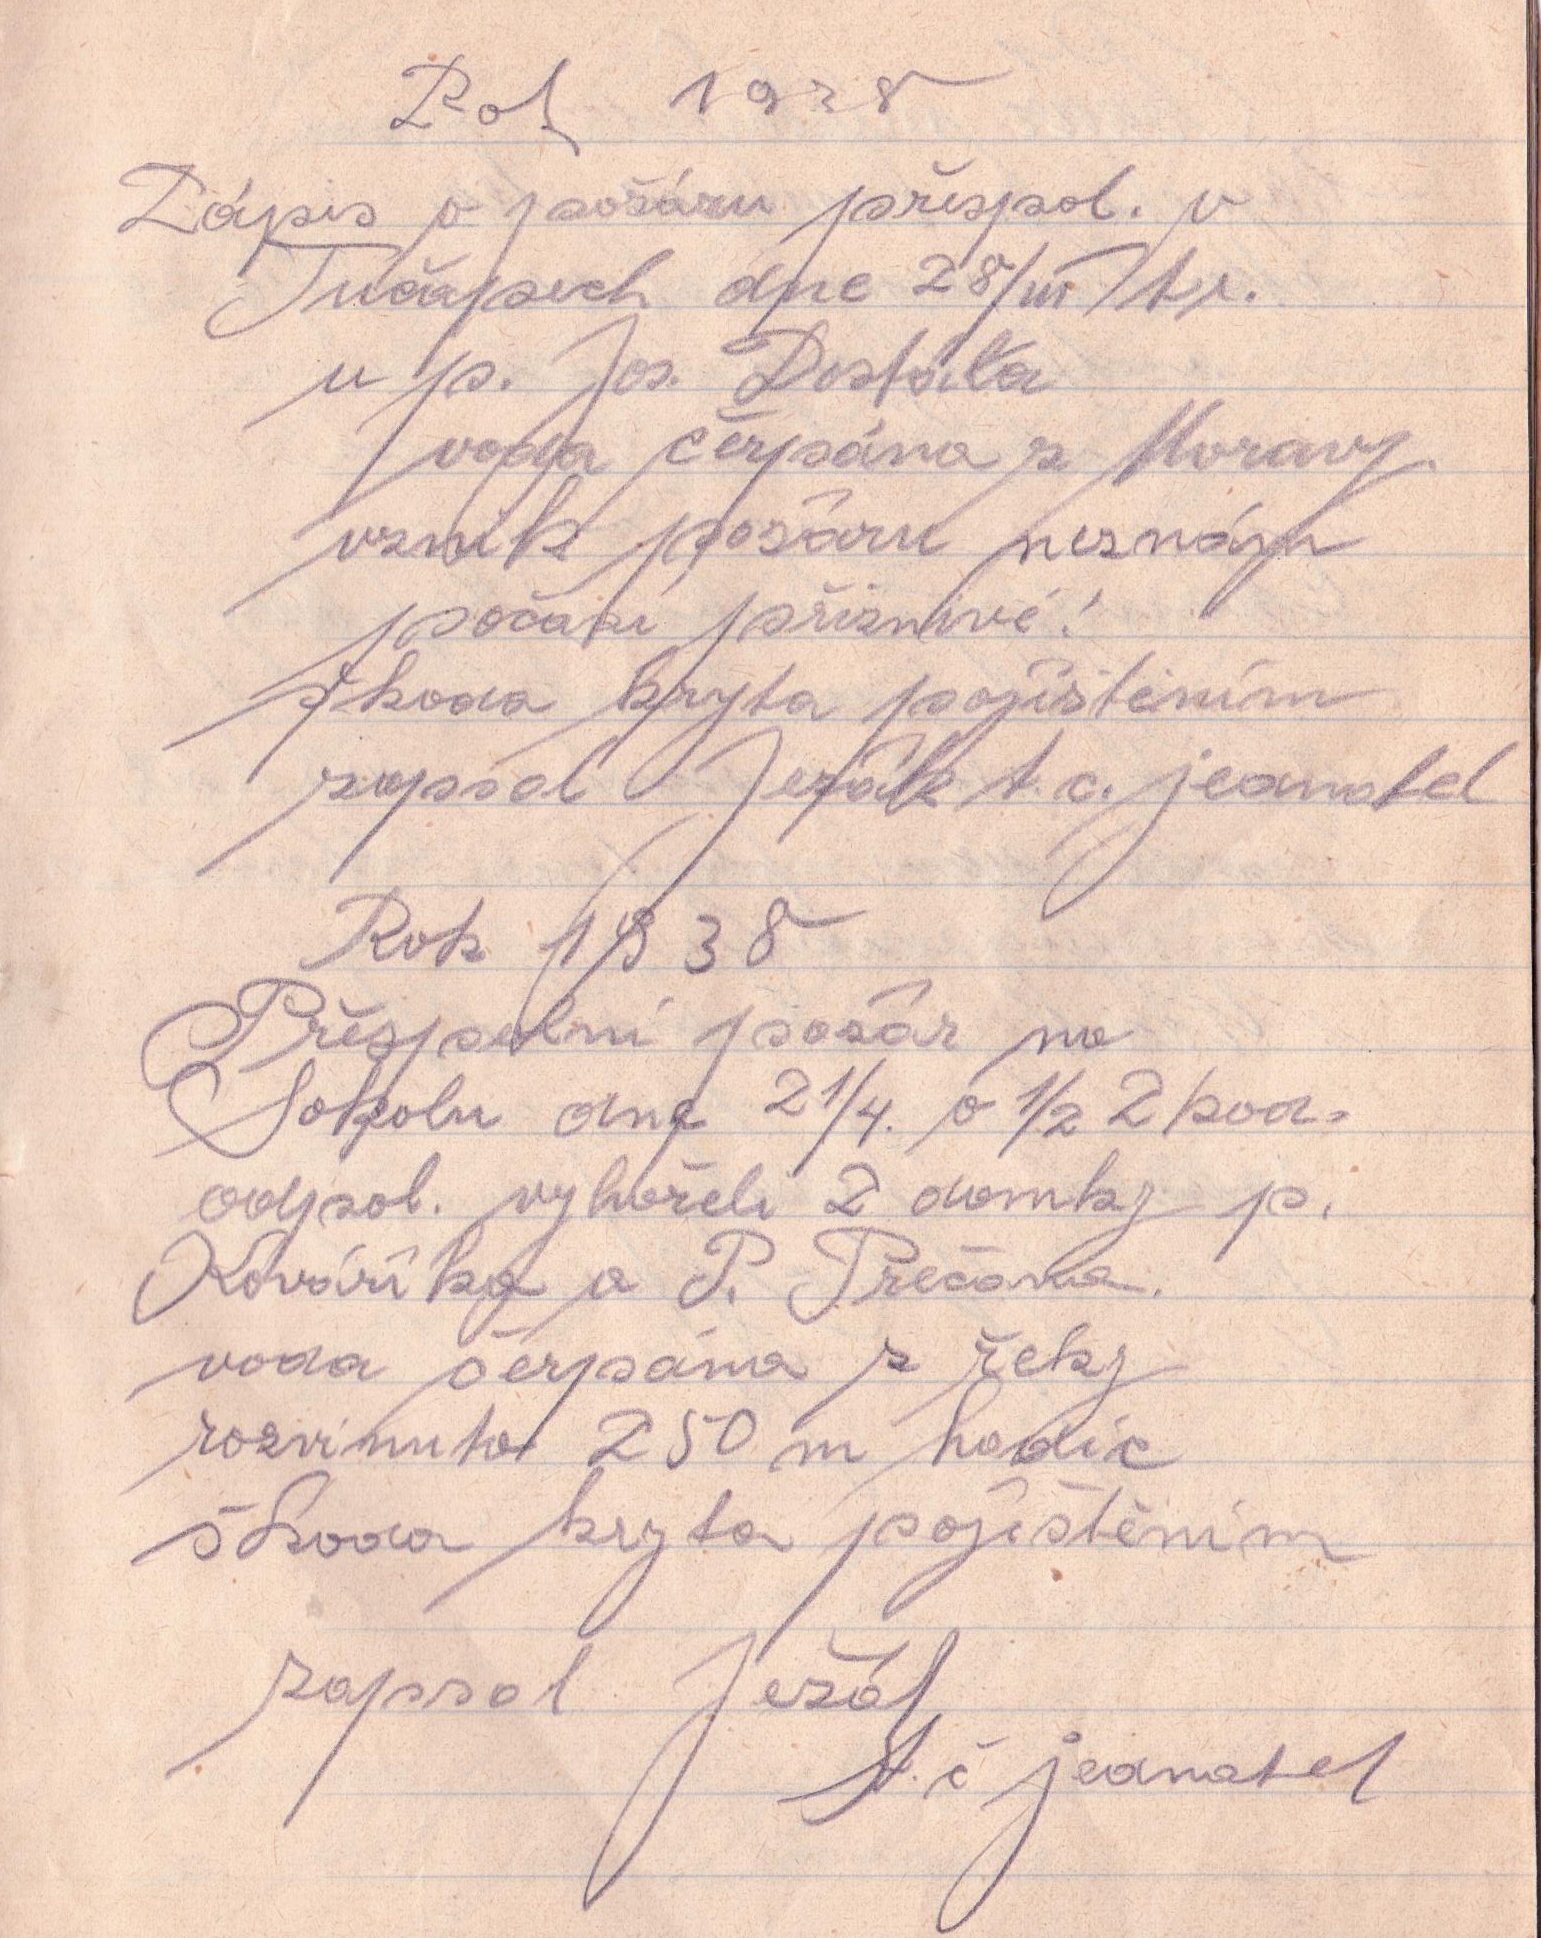 Rok 1938
Zápis o požáru přespol. v
Tučapech dne 28/III t.r.
u p. Jos. Dostála
voda čerpána z Moravy.
vznik požáru neznám
počasí příznivé!
škoda kryta pojištěním
zapsal Ježák t.c. jednatel
Rok 1938
Přespolní požár na
Sokolu dne 21/4. o 1/2 2 hod.
odpol. vyhořeli 2 domky p.
Kováříka a P. Prečana.
voda čerpána z řeky
rozvinuto 250 m hadic
škoda kryta pojištěním
zapsal Ježák
t.č jednatel